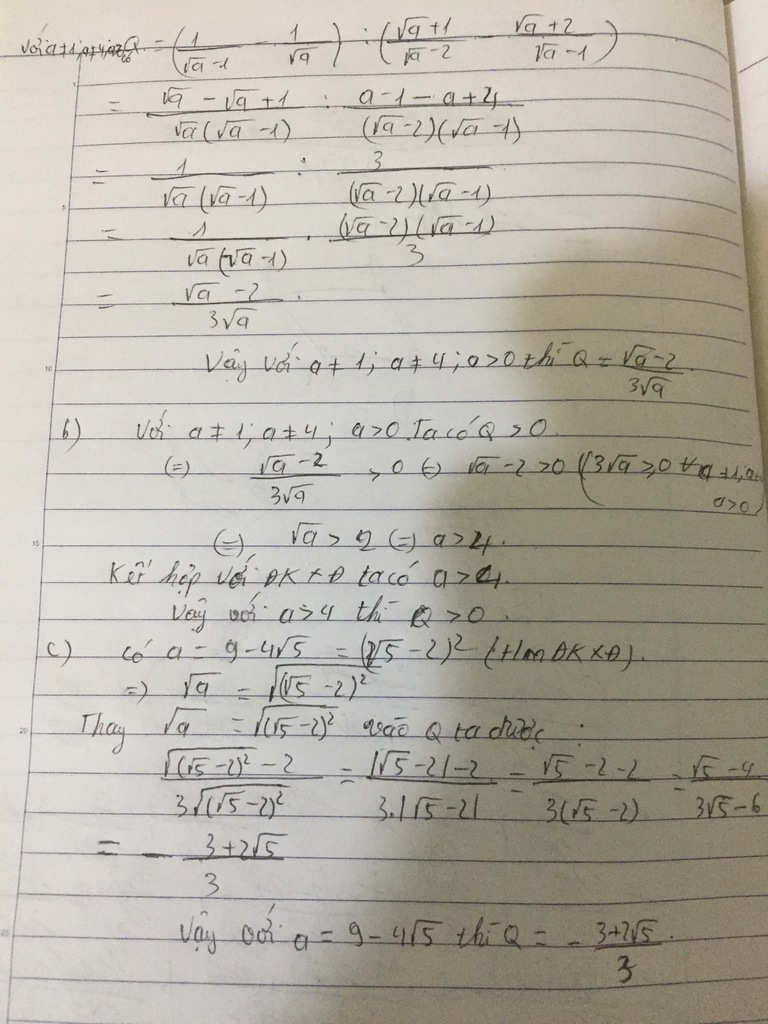 với a≠1, a≠4, a>0 Q = (1/(√a-1) - 1/√a) : ((√a+1)/(√a-2) - (√a+2)/(√a-1))
= (√a - √a+1)/(√a(√a-1)) : (a-1-a+4)/((√a-2)(√a-1))
= 1/(√a(√a-1)) : 3/((√a-2)(√a-1))
= 1/(√a(√a-1)) . ((√a-2)(√a-1))/3
= (√a-2)/(3√a).
Vậy với a≠1; a≠4; a>0 thì Q = (√a-2)/(3√a)
b) Với a≠1; a≠4; a>0. Ta có Q>0.
(=) (√a-2)/(3√a) >0 (=) √a-2>0 (3√a>0 ∀a≠1; a>0)
(=) √a>2 (=) a>4.
Kết hợp với ĐKXĐ ta có a>4.
Vậy với a>4 thì Q>0.
c) có a = 9-4√5 = (√5-2)² (t/m ĐKXĐ).
=) √a = √((√5-2)²)
Thay √a = √((√5-2)²) vào Q ta được:
(√((√5-2)²)-2)/(3√((√5-2)²)) = (|√5-2|-2)/(3.|√5-2|) = (√5-2-2)/(3(√5-2)) = (√5-4)/(3√5-6)
= - (3+2√5)/3
Vậy với a = 9-4√5 thì Q = - (3+2√5)/3.